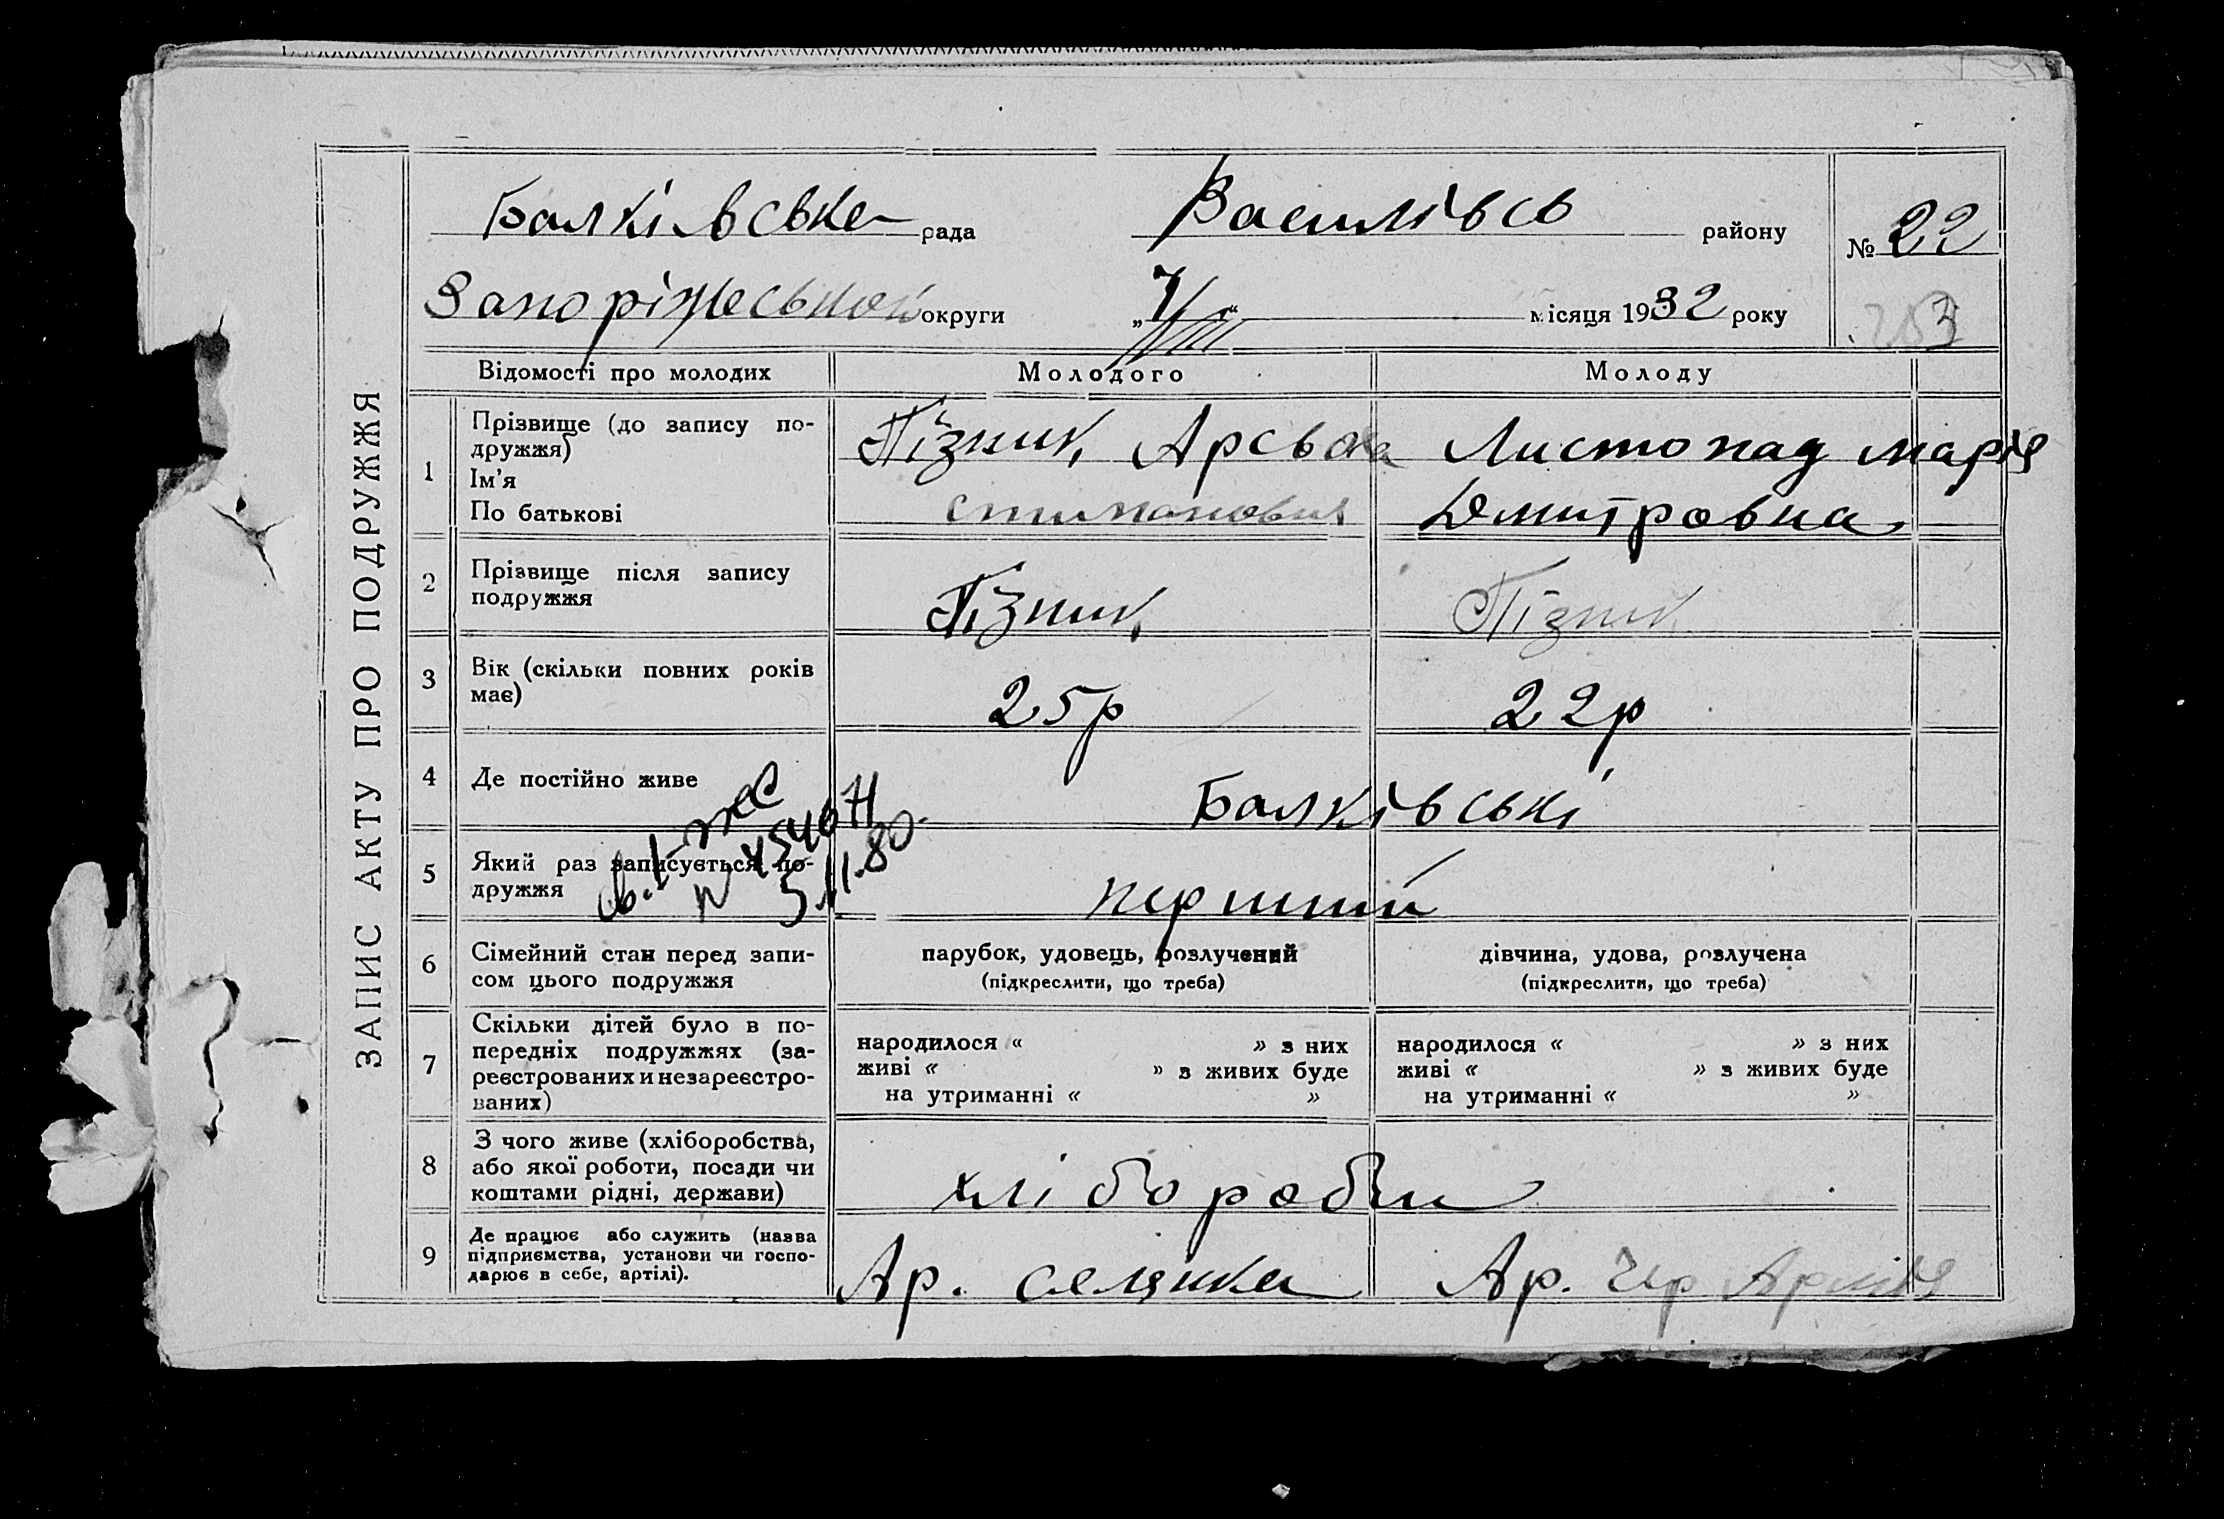 ЗАПИС АКТУ ПРО ПОДРУЖЖЯ
Балківська рада Василівсь району № 22
Запоріжської округи „7/VIII“ місяця 1932 року
203
Відомості про молодих Молодого Молоду
1 Прізвище (до запису по-
дружжя)
Ім’я
По батькові
Пізник Листопад Марія
Дмитровна
2 Прізвище після запису
подружжя
Пізник Пізник
3 Вік (скільки повних років
має)
25р 22р
4 Де постійно живе
Балківські
5 Який раз записується по-
дружжя
перший
св. 1-жс
N 454671
5.11.80.
6 Сімейний стан перед запи-
сом цього подружжя
парубок, удовець, розлучений
(підкреслити, що треба)
дівчина, удова, розлучена
(підкреслити, що треба)
7 Скільки дітей було в по-
передніх подружжях (за-
реєстрованих и незареєстро-
ваних)
народилося « » з них
живі « » з живих буде
на утриманні « »
народилося « » з них
живі « » з живих буде
на утриманні « »
8 З чого живе (хліборобства,
або якої роботи, посади чи
коштами рідні, держави)
хлібороби
9 Де працює або служить (назва
підприємства, установи чи госпо-
дарює в себе, артілі).
Ар. Ар. Чер